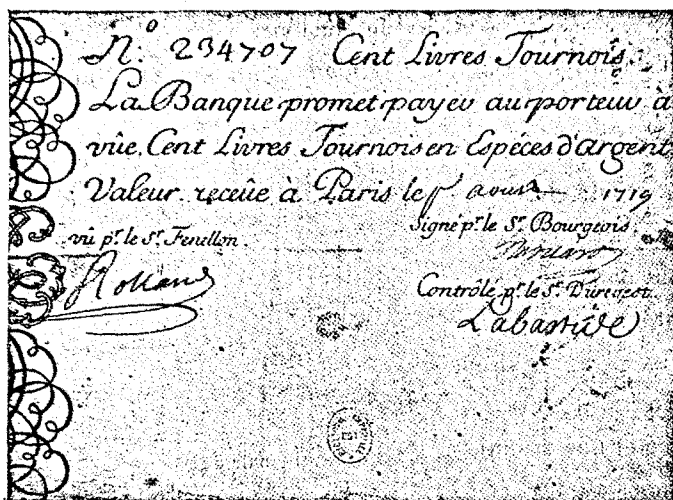 N.º 234707 Cent Livres Tournois.
La Banque promet payer au porteur à
vüe, Cent Livres Tournois en Espéces d'argent
Valeur receüe à Paris le aoust 1719
vû p.r le S.r Fenellon.
Signé p.r le S.r Bourgeois.
Rolland
Contrôlé p.r le S.r Durevest.
Labastide